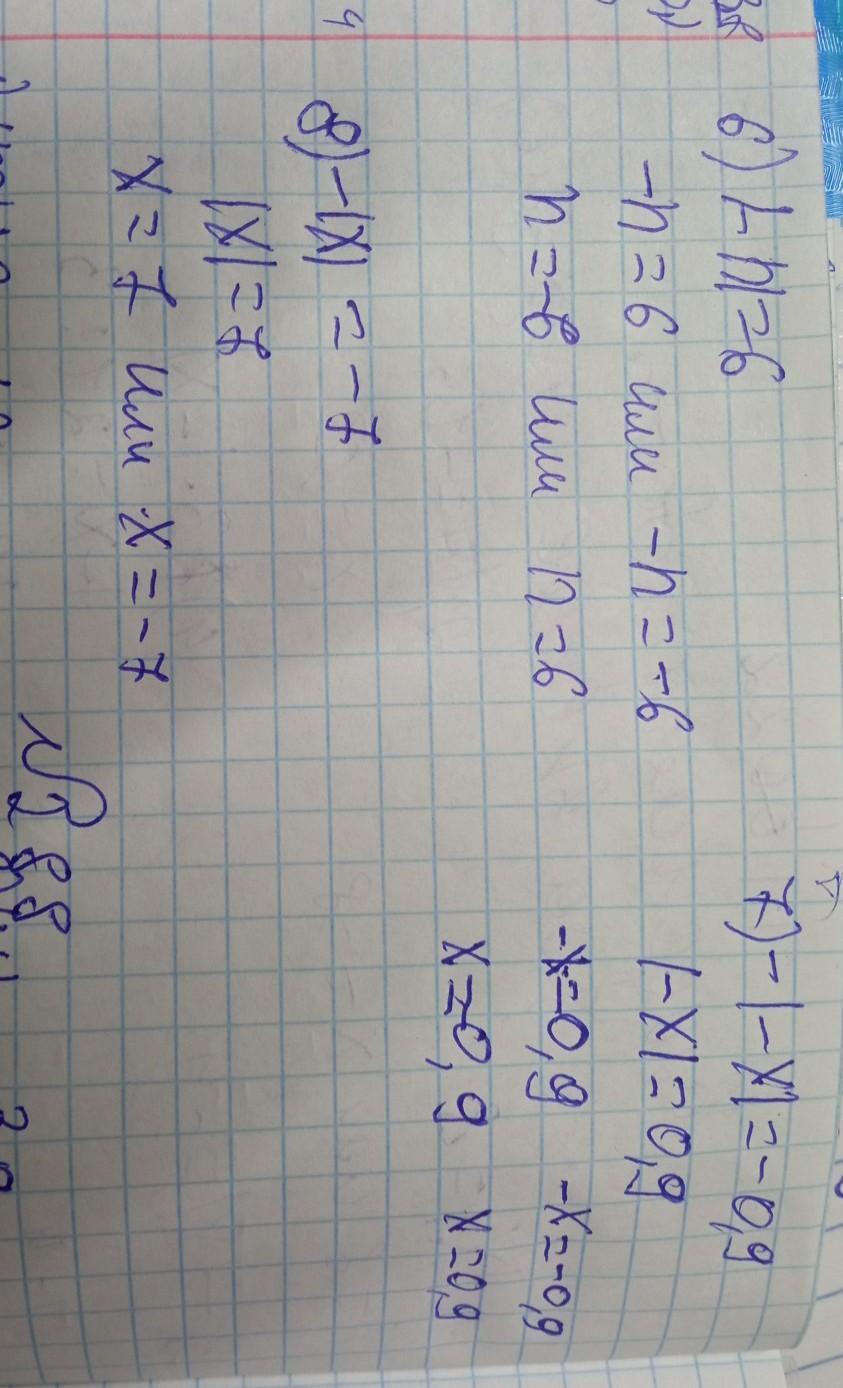 6) |-n|=6
-n=6 или -n=-6
n=-6 или n=6
7) -|-x|=-0,9
|-x|=0,9
-x=0,9 -x=-0,9
x=0,9 x=0,9
8) -|x| = -7
|x|=7
x=7 или x=-7